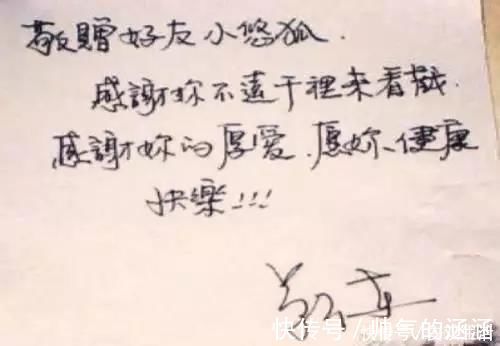 敬贈好友小悠狐.
感謝妳不遠千裡来看戯.
感謝妳的厚爱.愿妳健康
快樂!!!
快传号/帅气的涵涵